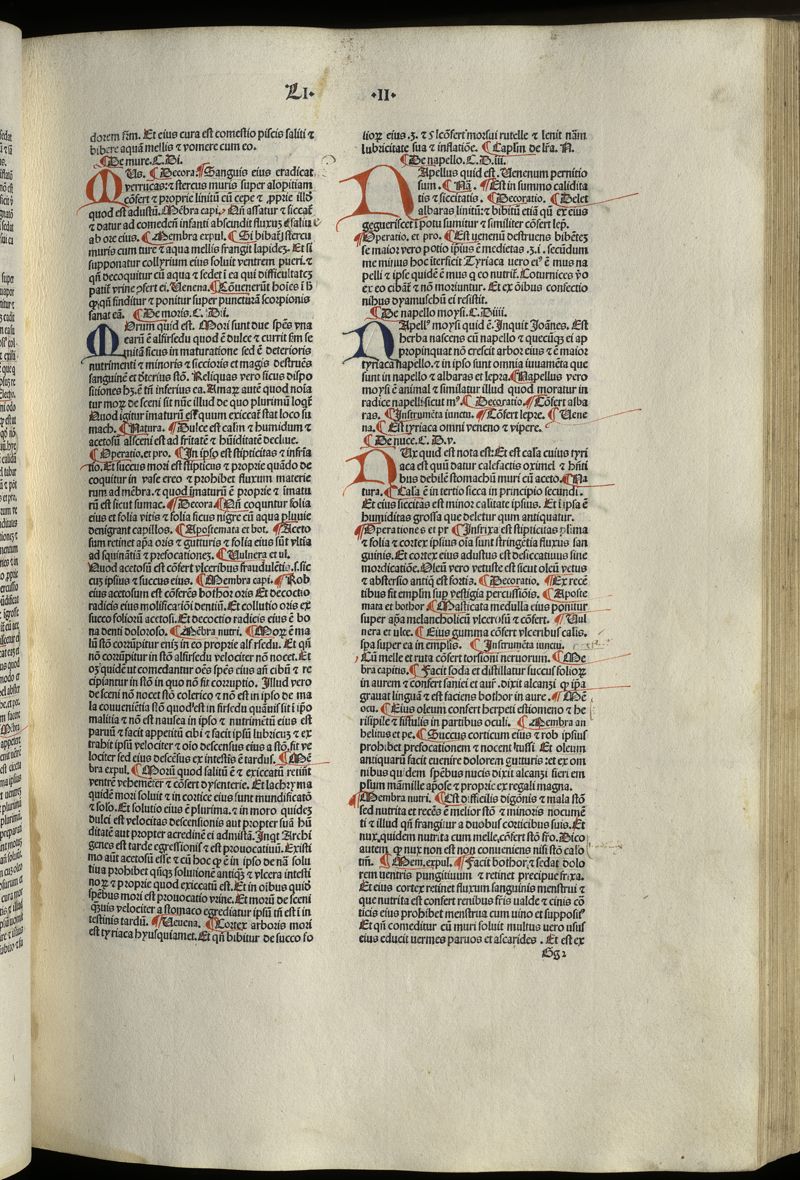 LI· ·II·
dorem firm. Et eius cura est comestio piscis saliti ⁊
bibere aquā mellis ⁊ vomere cum eo.
¶ De mure. C. Di.
MUs. ¶ Decora. ¶ Sanguis eius eradicat
verrucas: ⁊ stercus muris super alopitiam
cōfert ⁊ proprie linitū cū cepe ⁊ ꝓprie illď
quod est adustū. Mēbra capi. Qñ assatur ⁊ siccať
⁊ datur ad comedēď infanti abscindit fluxuȝ saliue
ab ore eius. ¶ Membra expul. ¶ Si bibať stercꝰ
muris cum ture ⁊ aqua mellis frangit lapideȝ. Et si
supponatur collyrium eius soluit ventrem pueri. ⁊
qñ decoquitur cū aqua ⁊ sedet ī ea qui difficultateȝ
patiť vrine ꝯfert ei. Venena. ¶ Conuenerūt hoīes ī ħ
ꝙ qñ finditur ⁊ ponitur super puncturā scorpionis
sanat eā. ¶ De moris. C. Dii.
MOrum quid est. Mori sunt due spēs vna
earū ē alfirsedu quod ē dulce ⁊ currit
mitā ficus in maturatione sed ē deterioris
nutrimenti ⁊ minoris ⁊ siccioris et magis destruēs
sanguinē et deterius stō. Reliquas vero sicus dispo
sitiones hȝ. ē tñ inferius ea. Amaꝝ autē quod noīa
tur moꝝ de sceni sit nūc illud de quo plurimū logť
Quod igitur imaturū est quum exiccať stat loco su
mach. ¶ Natura. ¶ Dulce est calm ⁊ humidum ⁊
acetosū alsceni est ad fritatē ⁊ hūiditatē decliue.
¶ Operatio. et pro. ¶ In ipso est stipticitas ⁊ infria
tio. Et succus mori est stipticus ⁊ proprie quādo de
coquitur in vase ereo ⁊ prohibet fluxum materie
rum ad mēbra. ⁊ quod imaturū ē proprie ⁊ imatu
rū est sicut sumac. ¶ Decora. ¶ Qñ coquntur folia
eius et folia vitis ⁊ folia ficus nigre cū aqua pluuie
denigrant capillos. ¶ Apostemata et bot. ¶ Aceto
sum retinet apāta oris ⁊ gutturis ⁊ folia eius sūt vtilia
ad squinātiā ⁊ prefocationeȝ. ¶ Vulnera et ul.
Quod acetosū est cōfert vlceribus fraudulētis. ⁊ sic
cuȝ ipsius ⁊ succus eius. ¶ Membra capi. ¶ Rob
eius acetosum est cōferēs bothor oris. Et decoctio
radicis eius molificatiōi dentiū. Et collutio oris ex
succo folioꝝ acetosi. Et decoctio radicis eius ē bo
na denti doloroso. ¶ Mēbra nutri. ¶ Moꝝ ē ma
lū stō corrūpitur eniȝ in eo proprie alfirsedu. Et qñ
nō corrūpitur in stō alfirsedu velociter nō nocet. Et
oȝ quidē ut comedantur oēs spēs eius añ cibū ⁊ re
cipiantur in stō in quo nō sit corruptio. Illud vero
de sceni nō nocet stō colerico ⁊ nō est in ipso de ma
la couueniētia stō quod est in firsedu quāuis sit ī ipō
malitia ⁊ nō est nausea in ipso ⁊ nutrimētū eius est
paruū ⁊ facit appetitū cibi ⁊ facit ipsū lubricuȝ ⁊ ex
trahit ipsū velociter ⁊ oīo descensus eius a stō. sit ve
lociter sed eius descēsus ex intestīs ē tardus. ¶ Mē
bra expul. ¶ Morū quod salitū ē ⁊ exiccatū retiīt
ventrē vehemēter ⁊ cōfert dysenterie. Et lachryma
quidē mori soluit ⁊ in cortice eius sunt mundificatō
⁊ solo. Et solutio eius ē plurima. ⁊ in moro quideȝ
dulci est velocitas descensionis aut propter suā hū
ditatē aut propter acredinē ei admistā. Inqt Archi
genes est tarde egressionis ⁊ est prouocatiuū. Existi
mo aūt acetosū esse ⁊ cū hoc ꝙ ē in ipso de nā solu
tiua prohibet qñsqȝ solutionē antiqȝ ⁊ vlcera intesti
noꝝ ⁊ proprie quod exiccatū est. Et in oībus quidē
spēbus mori est prouocatio vrine. Et morū de sceni
qȝuis velociter a stomaco egrediatur ipsū tñ est ī in
testinis tardū. ¶ Venena. ¶ Cortex arboris mori
est tyriaca hyusquiamet. Et qñ bibitur de succo fo
lioꝝ eius. ʒ. ⁊ s̄ ꝯfert morsui rutelle ⁊ lenit nām
lubricitate sua ⁊ inflatiōe. ¶ Caplm̄ de lr̄a. N.
¶ De napello. C. D. iii.
NApellus quid est. Venenum pernitio
sum. ¶ Nā. ¶ Est in summo calidita
tis ⁊ siccitatis. ¶ Decoratio. ¶ Delet
albaras linitū: ⁊ bibitū etiā qñ ex eius
geguerisceī ī potu sumitur ⁊ similiter cōfert lep̄.
¶ Operatio. et pro. ¶ Est uenenū destruens bibēteȝ
se maior vero potio ipsius ē medietas .ʒ.i. secūdum
me minus hoc īterficit Tyriaca uero ei ē mus na
pelli ⁊ ipse quidē ē mus ꝙ eo nutriť. Coturnices ꝟo
ex eo cibāť ⁊ nō moriuntur. Et ex oībus confectio
nibus dyamuschū ei resistit.
¶ De napello moysi. C. Diiii.
NApellꝰ moysi quid ē. Inquit Joānes. Est
herba nascens cū napello ⁊ quecūqȝ ei ap
propinquat nō crescit arbor eius ⁊ ē maior
tyriaca napello. ⁊ in ipso sunt omnia iuuamēta que
sunt in napello ⁊ albaras et lepra. ¶ Napellus vero
moysi ē animal ⁊ similatur illud quod moratur in
radice napelli: sicut mꝰ. ¶ Decoratio. ¶ Cōfert alba
ras. ¶ Instrumēta iuncta. ¶ Cōfert lepre. ¶ Vene
na. ¶ Est tyriaca omni veneno ⁊ vipere.
¶ De nuce. C. D. v.
NUx quid est nota est: Et est casa cuius tyri
aca est quū datur calefactis oximel ⁊ hñti
bus debilē stomachū muri cū aceto. ¶ Na
tura. ¶ Casa ē in tertio sicca in principio secundi.
Et eius siccitas est minor calitate ipsius. Et ī ipsa ē
humiditas grossa que deletur qum antiquatur.
¶ Operationes et pr ¶ Infrixa est stipticitas plima
⁊ folia ⁊ cortex ipsius oīa sunt stringētia fluxus san
guinis. Et cortex eius adustus est desiccatiuus sine
mordicatiōe. Oleū vero vetuste est sicut oleū vetus
⁊ abstersio antiq̄ est fortis. ¶ Decoratio. ¶ Ex recē
tibus fit emplm̄ sup vestigia percussiōis. ¶ Aposte
mata et bothor ¶ Masticata medulla eius ponitur
super apā melancholicū vlcerosū ⁊ cōfert. ¶ Vul
nera et ulce. ¶ Eius gumma cōfert vlceribus calis.
spa super ea in emplīs. ¶ Instrumēta iuncta.
¶ Cū melle et ruta cōfert torsioni neruorum. ¶ Mē
bra capitis. ¶ Facit soda et distillatur succus folioꝝ
in aurem ⁊ confert saniei et auī. dixit alcanzi ꝙ ipā
grauat linguā ⁊ est faciens bothor in aure. ¶ Mē
ocu. ¶ Eius oleum confert herpeti estiomeno ⁊ he
risipile ⁊ fistulis in partibus oculi. ¶ Membra an
helitus et pe. ¶ Succus corticum eius ⁊ rob ipsius
prohibet prefocationem ⁊ nocent tussi Et oleum
antiquarū facit euenire dolorem gutturis: et ex om
nibus quidem spēbus nucis dixit alcanzi fieri em
plsum māmille apose ⁊ proprie ex regali magna.
¶ Membra nutri. ¶ Est difficilis digōnis ⁊ mala stō
sed nutrita et recēs ē melior stō ⁊ minoris nocumē
ti ⁊ illud qñ frangitur a duobus corticibus suis. Et
nux quidem nutrita cum melle, cōfert stō fro. Dico
autem ꝙ nux non est non conueniens nisi stō calo
tm̄. ¶ Mem. expul. ¶ Facit bothor, ⁊ sedat dolo
rem uentris pungitiuum ⁊ retinet precipue frixa.
Et eius cortex retinet fluxum sanguinis menstrui ⁊
que nutrita est confert renibus fris ualde ⁊ cinis cō
ticis eius prohibet menstrua cum uino et supposit̄
Et qñ comeditur cū muri soluit multus uero usus
eius educit uermes paruos et ascarides. Et est ex
Gg2